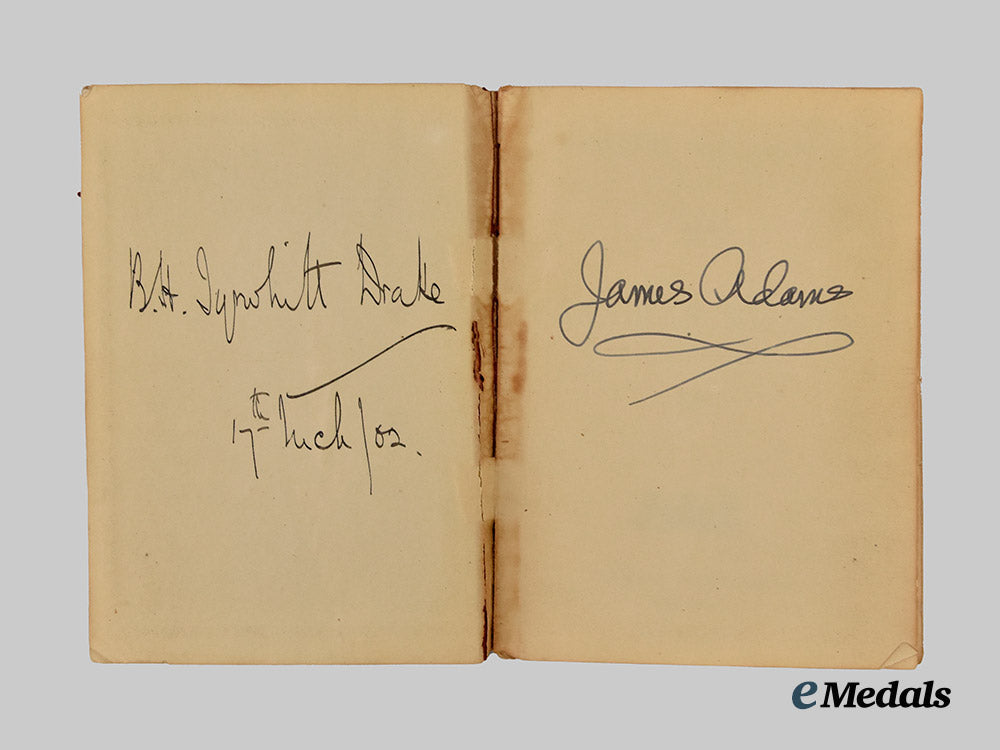 B.H. Tyrwhitt Drake
17th /02.
James Adams
eMedals